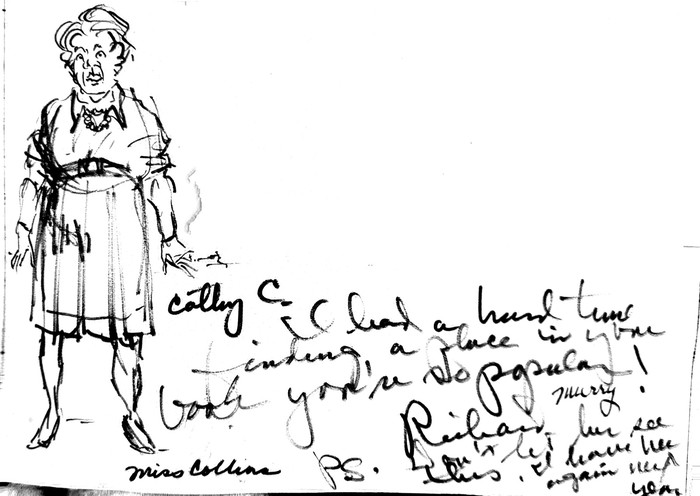 Cathy C.
I had a hard time
finding a place in your
book you're so popular!
Murry
Richard
PS. Don't let her see
this. I have her
again next
year
Miss Collins